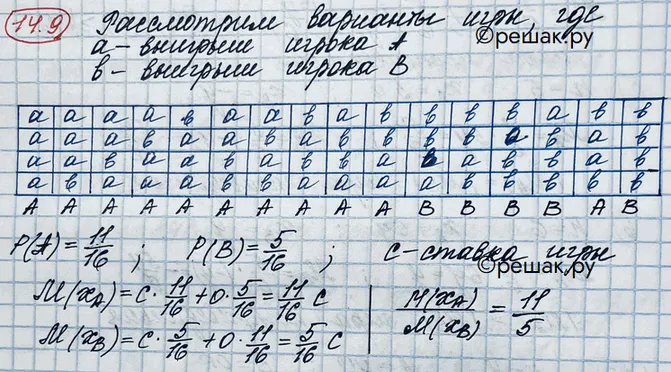 14.9 Рассмотрим варианты игры, где
а - выигрыш игрока А
в - выигрыш игрока В
©решак.ру
а а а а в а а в а в в в в а в в
а а а в а а в а в в в в а в а в
а а в а а в а в в а в а в в а в
а в а а а в в а а а а в в в в в
А А А А А А А А А А В В В В А В
P(A) = 11/16 ; P(B) = 5/16 ; с - ставка игры
©решак.ру
M(x_A) = c · 11/16 + 0 · 5/16 = 11/16 c | M(x_A)/M(x_B) = 11/5
M(x_B) = c · 5/16 + 0 · 11/16 = 5/16 c